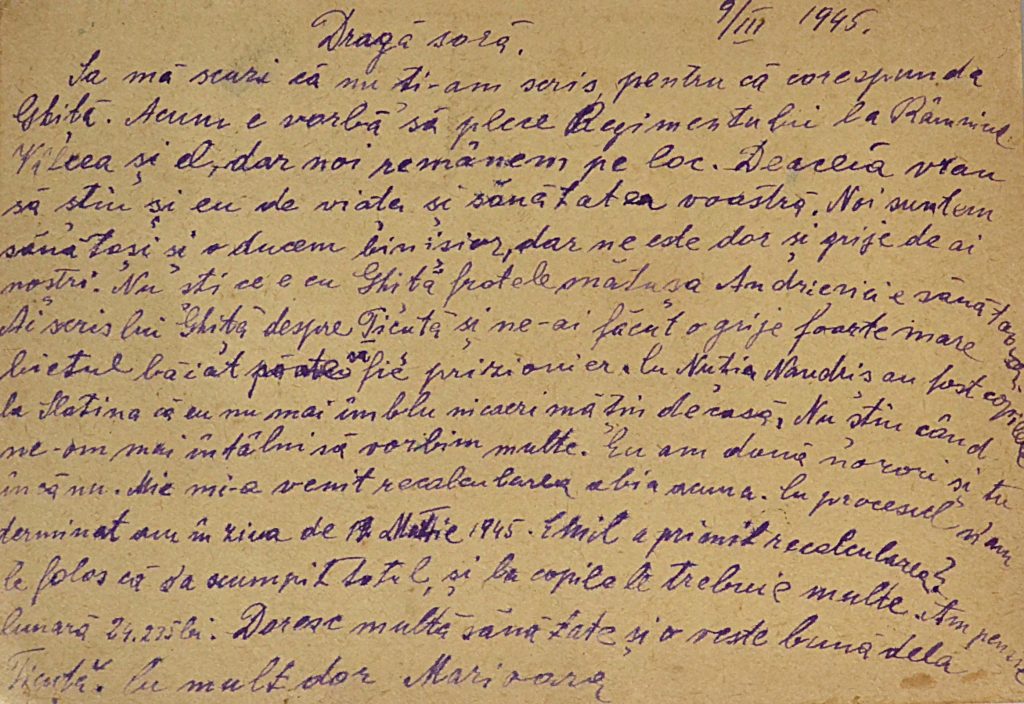 9/III 1945.
Dragă soră.
Sa mă scuri că nu ti-am scris, pentru că corespunda
Ghiță. Acum e vorbă să plece Regimentului la Râmnicu
Vîlcea și el, dar noi remânem pe loc. Deaceia vreau
să stiu și eu de viata si sănătatea voastră. Noi suntem
sănătoși si o ducem binișior, dar ne este dor și grije de ai
noștri. Nu sti ce e cu Ghiță fratele mătușa Andrieviei e sănătoasă.
Ai scris lui Ghiță despre Ticuță și ne-ai făcut o grije foarte mare
bietul băiat să fie prizionier. Cu Nutia Nandris au fost copilele
la Slatina că eu nu mai îmblu nicaeri mă tin de casă. Nu stiu când
ne-om mai întâlni să vorbim multe. Eu am două norori și tu
încă nu. Mie mi-a venit recalcularea abia acuma. Cu procesul n'am
terminat am în ziua de 1945. Emil a primit recalcularea?
le folos că s'a scumpit totul, și la copile le trebuie multe. Am pensie
lunară 24.225 lei. Doresc multă sănătate și o veste bună dela
Ticuță. Cu mult dor Marioara